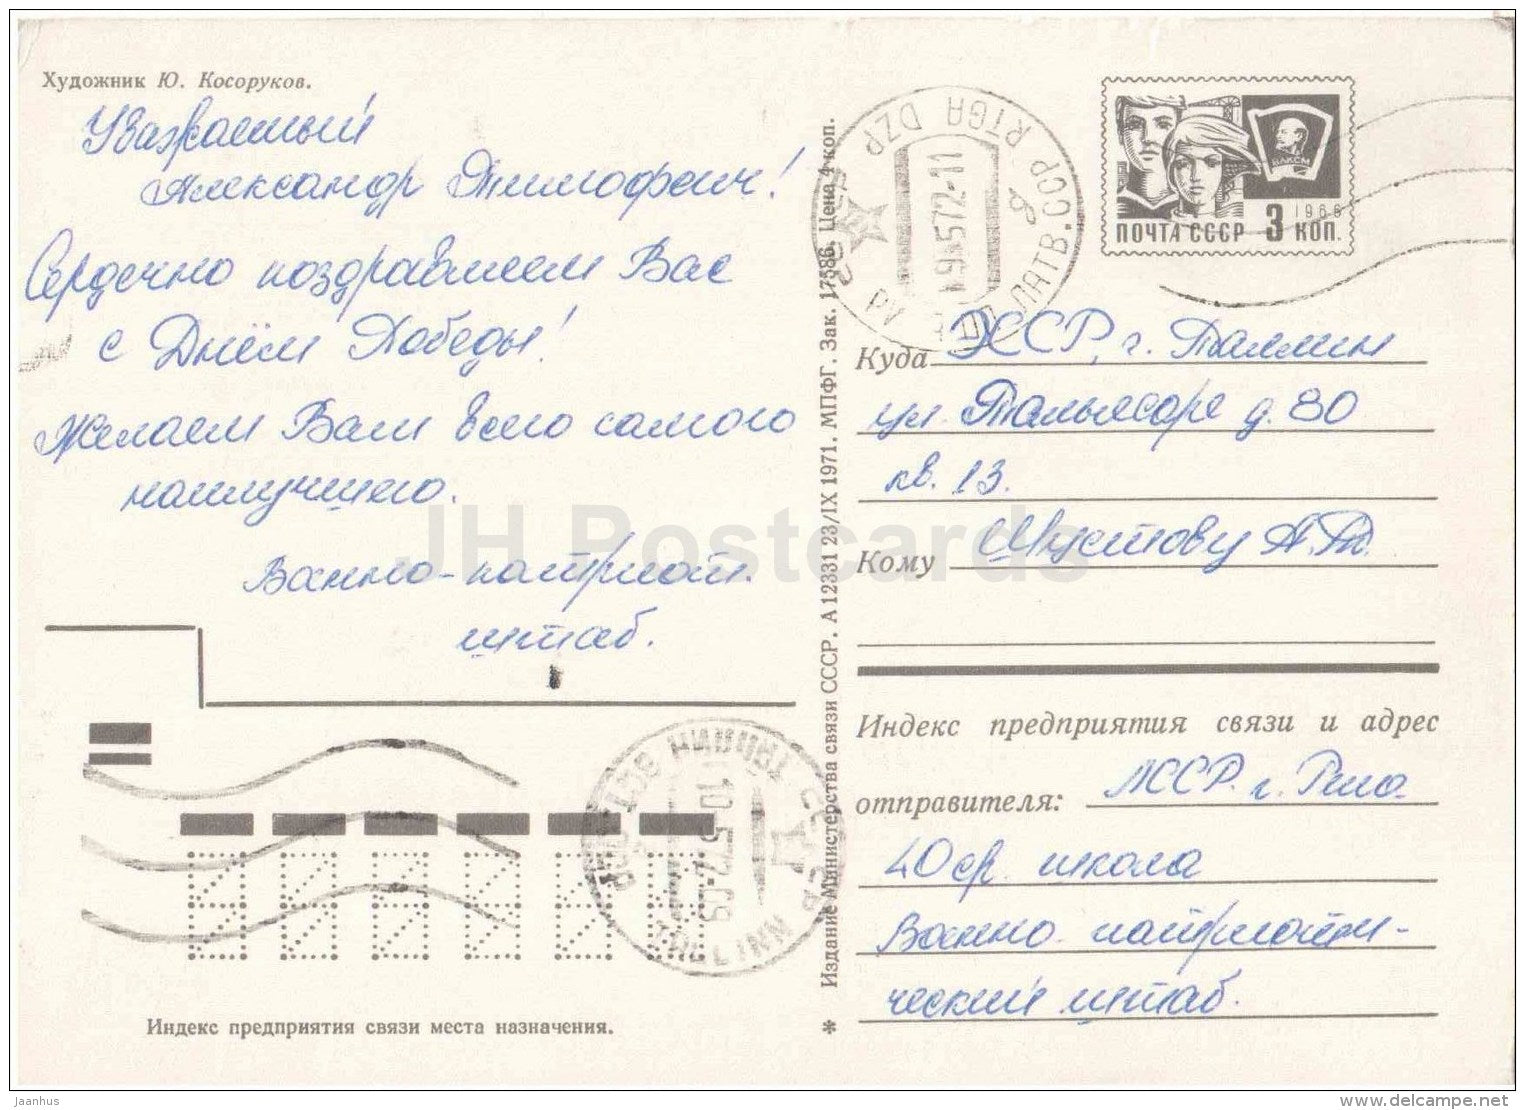 Художник Ю. Косоруков.
Уважаемый
Александр Тимофеич!
Сердечно поздравляем Вас
с Днём Победы!
Желаем Вам всего самого
наилучшего.
Военно-патриот.
штаб.
Индекс предприятия связи места назначения.
* Издание Министерства связи СССР. А 12331 23/IX 1971. МПФГ. Зак. 17586. Цена 4 коп.
RIGA DZP
ЛАТВ.ССР
9-572-11
1966
ВЛКСМ
ПОЧТА СССР 3 КОП.
Куда ЭССР, г. Таллин
ул. Тальясааре д. 80
кв. 13.
Кому Шустову А.Т.
Индекс предприятия связи и адрес
отправителя: ЛССР г. Рига
40 ср. школа
Военно патриоти-
ческий штаб.
10-572-09
TALLINN
JH Postcards
Jaanhus
delcampe.net